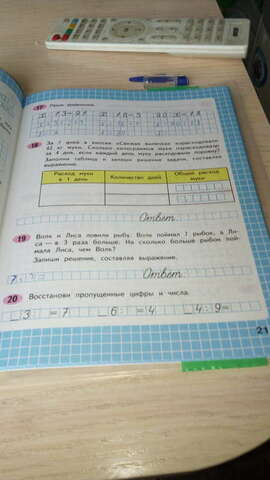 17 Реши уравнения.
18 За 7 дней в киоске «Свежая выпечка» израсходовали
42 кг муки. Сколько килограммов муки израсходовали
за 4 дня, если каждый день муку расходовали поровну?
Заполни таблицу и запиши решение задачи, составляя
выражение.
Расход муки в 1 день
Количество дней
Общий расход муки
Ответ
19 Волк и Лиса ловили рыбу. Волк поймал 7 рыбок, а Ли-
са — в 3 раза больше. На сколько больше рыбок пой-
мала Лиса, чем Волк?
Запиши решение, составляя выражение.
Ответ
20 Восстанови пропущенные цифры и числа.
_3: =7 _6: =4 _4:9=
21